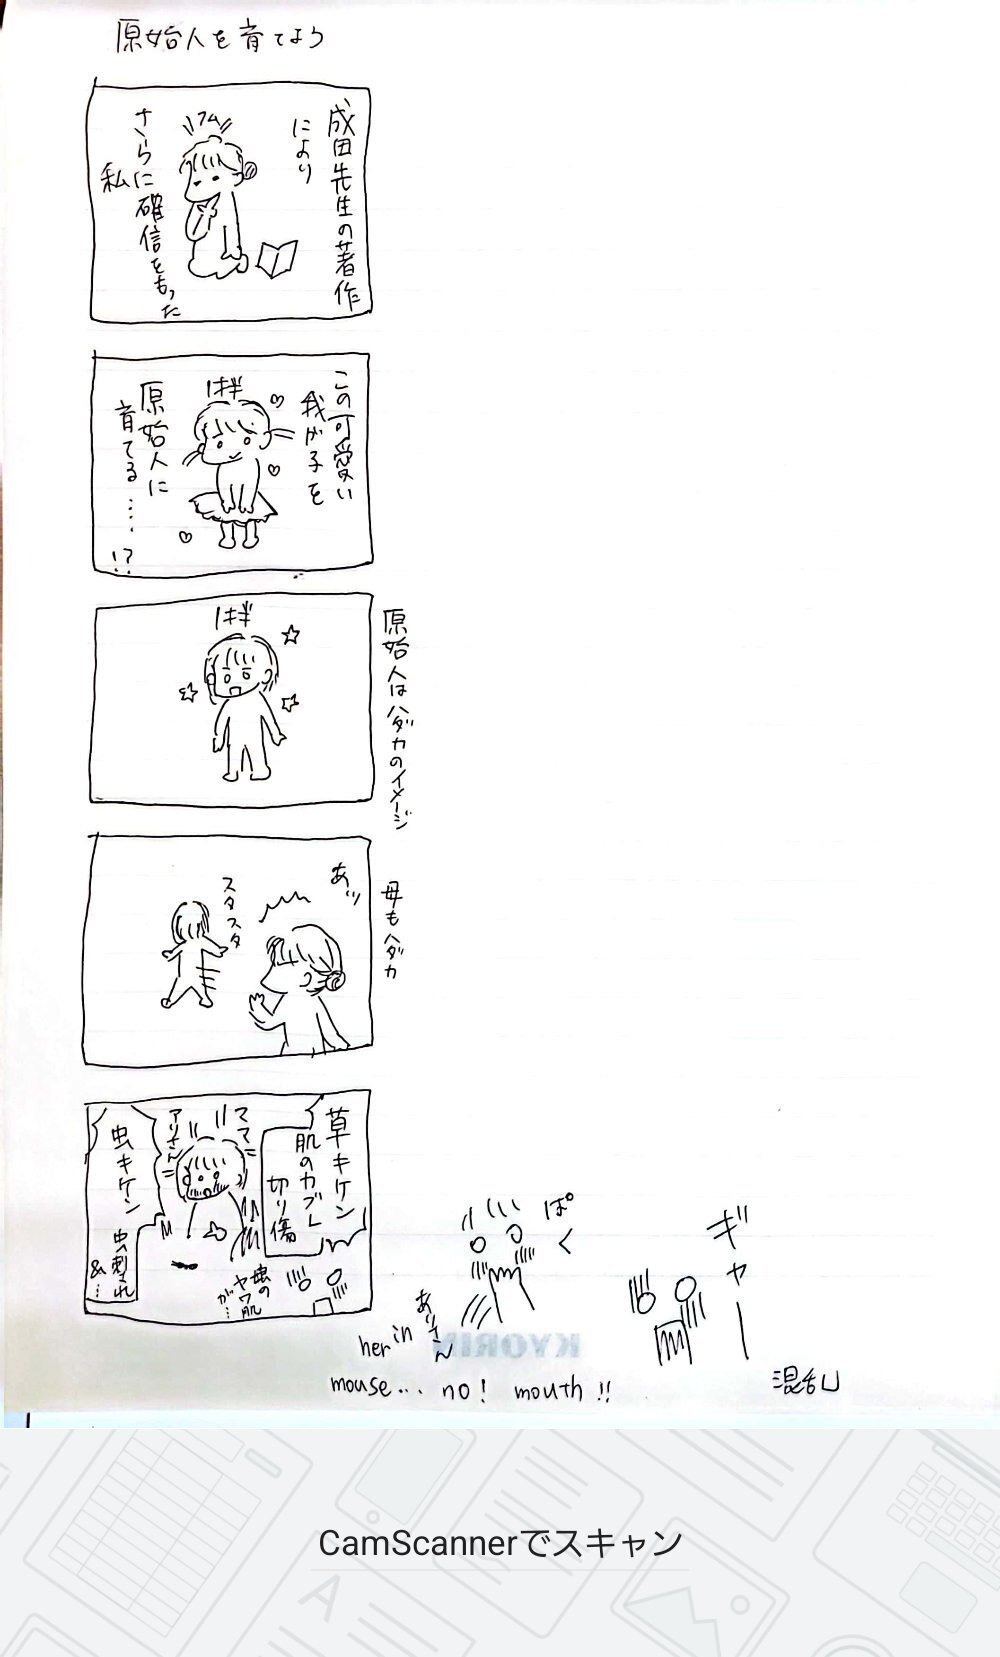 原始人を育てよう
成田先生の著作
により
フム
さらに確信をもった
私
この可愛い
我が子を
原始人に
育てる……!?
原始人はハダカのイメージ
あッ
スタスタ
母もハダカ
草キケン
肌のカブレ
切り傷
アリさん
虫キケン
虫刺され
&…
ヤワ肌
が…
ぱく
ありさん
in
her
mouse... no! mouth!!
ギャー
混乱
KYORIN
CamScannerでスキャン